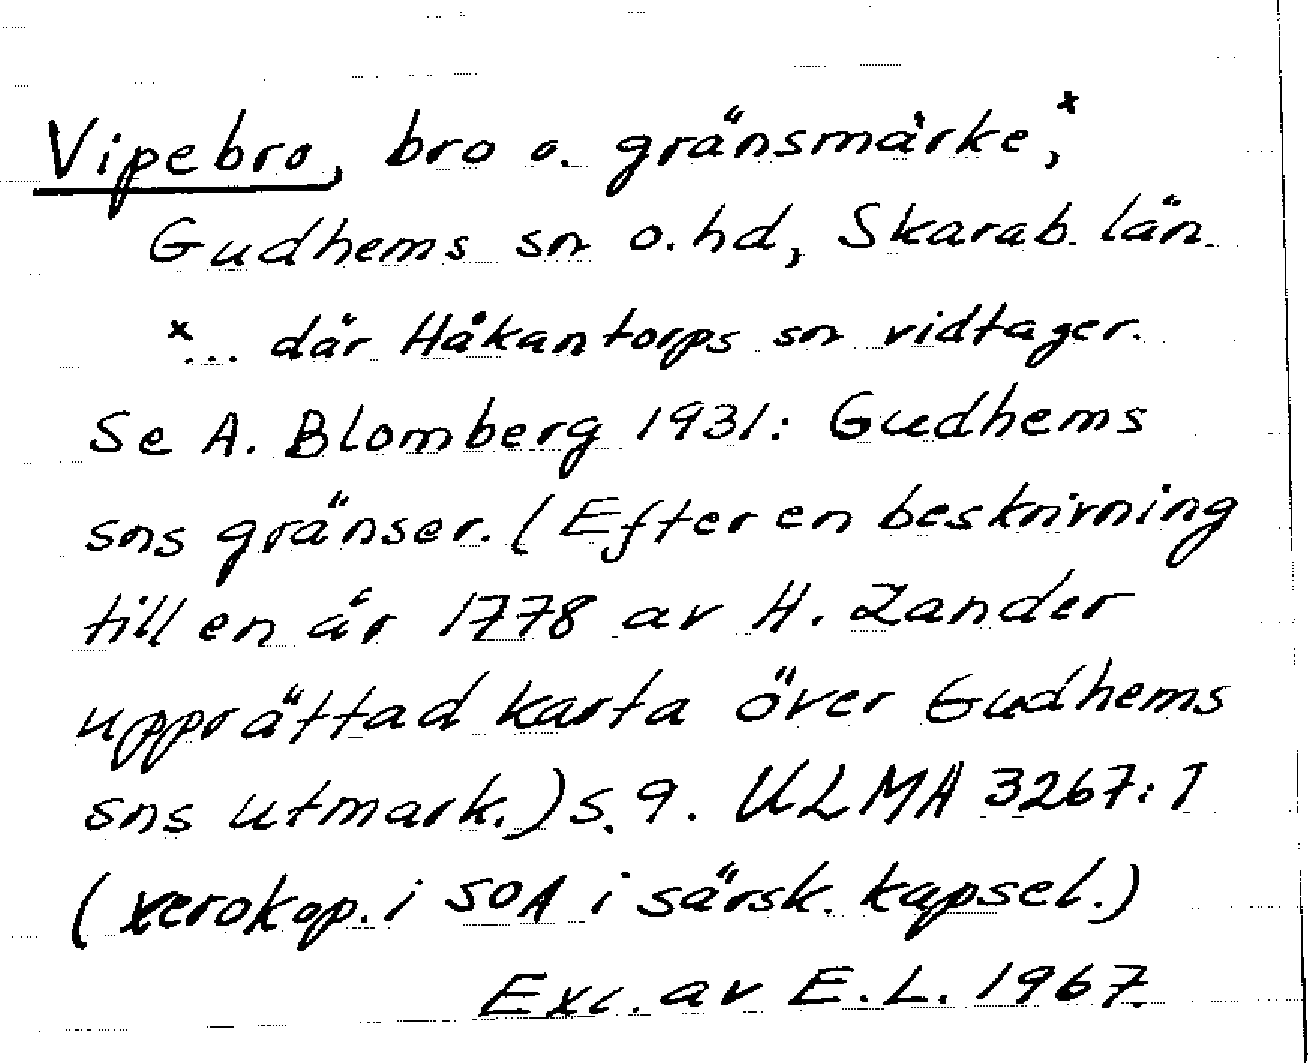 Vipebro, bro o. gränsmärke,x
Gudhems sn o. hd, Skarab. län.
x... där Håkantorps sn vidtager.
Se A. Blomberg 1931: Gudhems
sns gränser. (Efter en beskrivning
till en år 1778 av H. Zander
upprättad karta över Gudhems
sns utmark.) s. 9. ULMA 3267:1
(xerokop. i SOA i särsk. kapsel.)
Exc. av E. L. 1967.